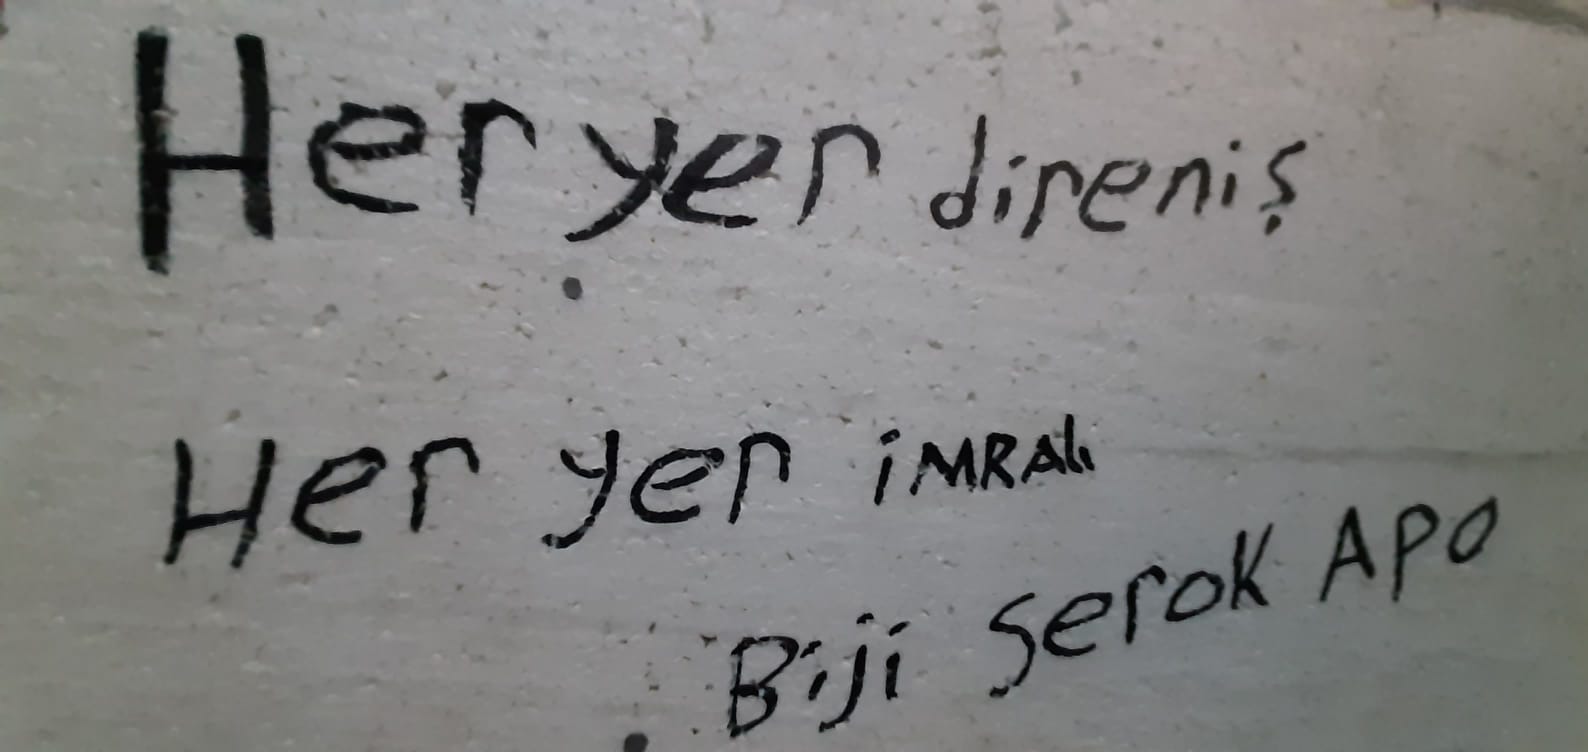 Her yer direniş
Her yer iMRALı
Biji serok APO